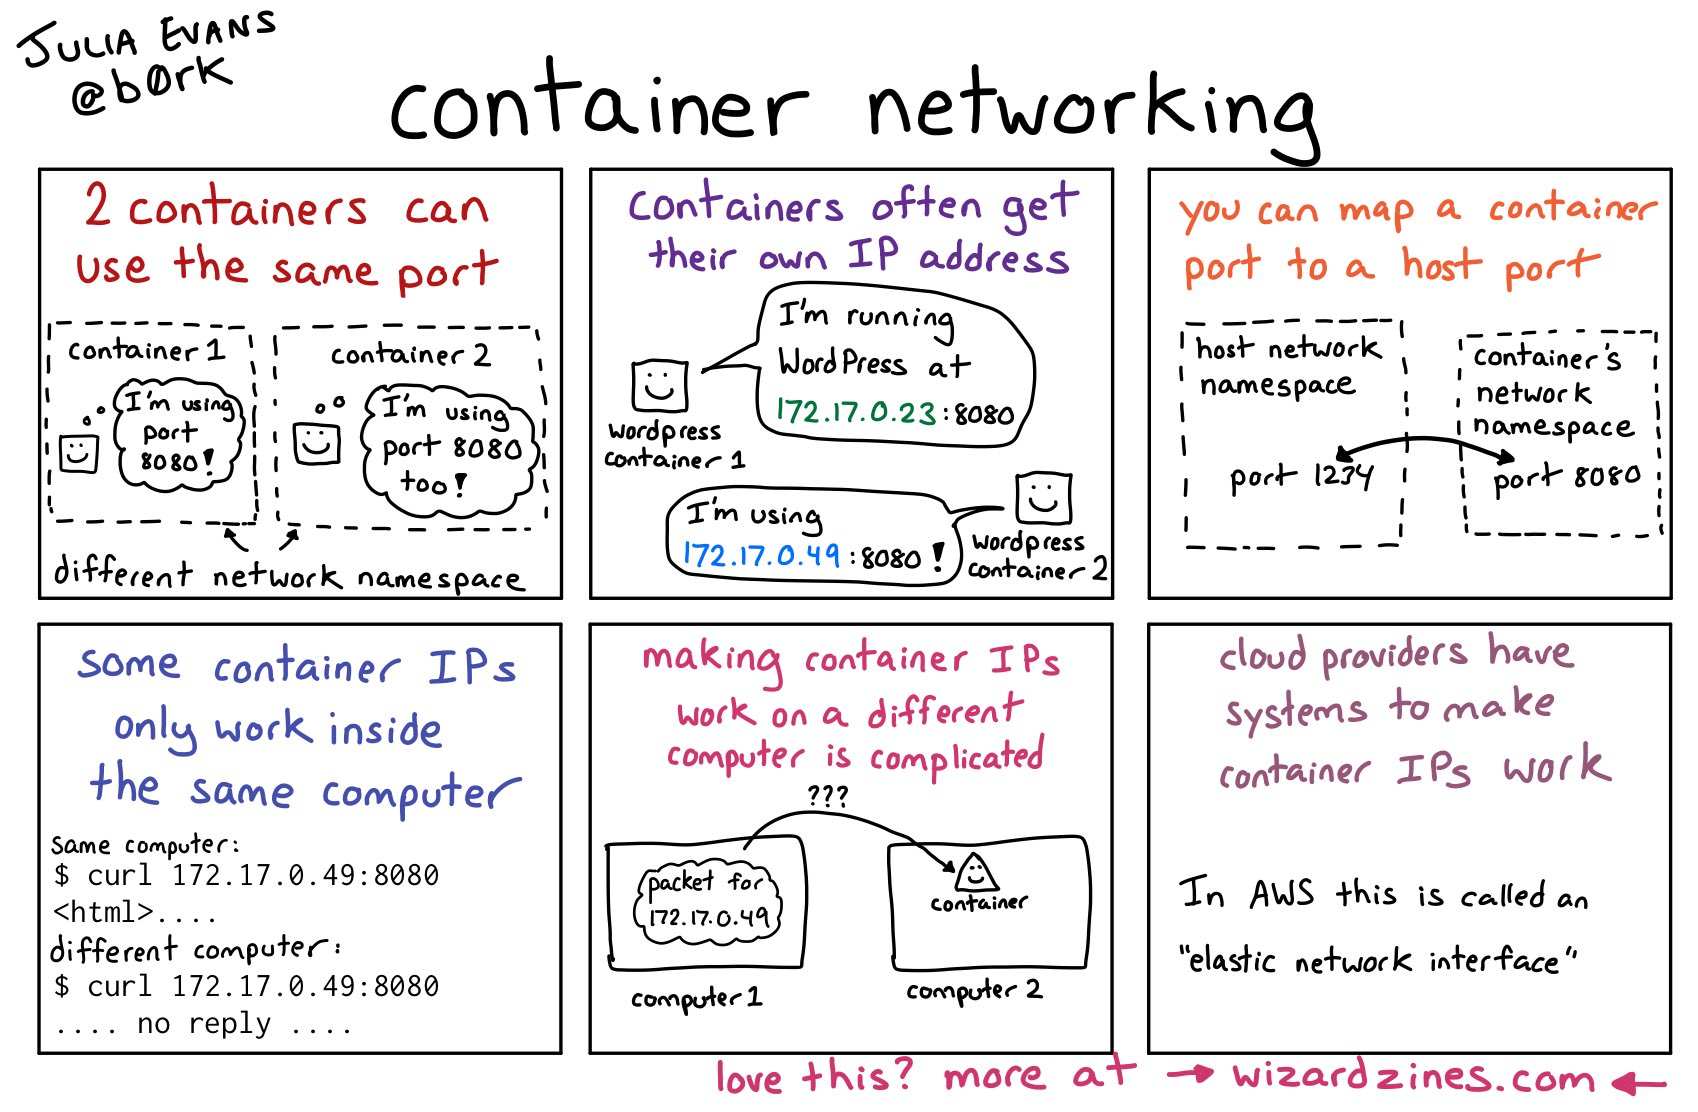 JULIA EVANS
@b0rk
container networking
2 containers can
use the same port
container 1
I'm using
port
8080!
container 2
I'm using
port 8080
too!
different network namespace
containers often get
their own IP address
I'm running
WordPress at
172.17.0.23:8080
wordpress
container 1
I'm using
172.17.0.49:8080!
wordpress
container 2
you can map a container
port to a host port
host network
namespace
port 1234
container's
network
namespace
port 8080
some container IPs
only work inside
the same computer
same computer:
$ curl 172.17.0.49:8080
<html>....
different computer:
$ curl 172.17.0.49:8080
.... no reply ....
making container IPs
work on a different
computer is complicated
???
packet for
172.17.0.49
computer 1
container
computer 2
cloud providers have
systems to make
container IPs work
In AWS this is called an
"elastic network interface"
love this? more at → wizardzines.com ←